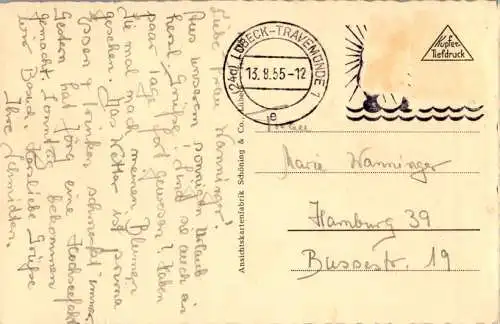 Liebe Frau Wanninger!
Aus unserem sonnigen Urlaub
herzl. Grüße! Sind sie auch ein
paar Tage fort gewesen? Haben
Sie mal nach meinen Blumen
gesehen? Das Wetter ist prima
Essen u. trinken schmeckt immer
Gestern hat Jörg eine Hochseefahrt
gemacht. Sonntag bekommen
wir Besuch. Herzliche Grüße
Ihre Schmidtten.
(24a) LÜBECK-TRAVEMÜNDE 1
13.8.55-12
e
Kupfer-
Tiefdruck
Ansichtskartenfabrik Schöning & Co., Lübeck
Frau
Marie Wanninger
Hamburg 39
Bussestr. 19